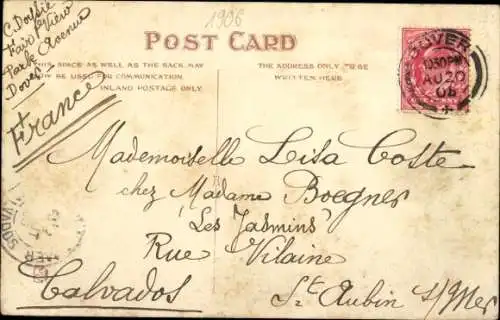 1906
C. Doubie
Fair View
Park Avenue
Dover
POST CARD
THIS SPACE AS WELL AS THE BACK MAY
NOW BE USED FOR COMMUNICATION.
INLAND POSTAGE ONLY.
THE ADDRESS ONLY TO BE
WRITTEN HERE.
DOVER
10.30PM
AU 20
06
France
Mademoiselle Lisa Coste
chez Madame Boegner
"Les Jasmins"
Rue Vilaine
Calvados
St Aubin s/Mer